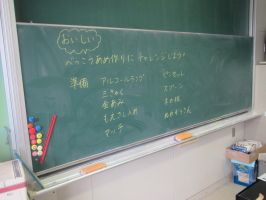 おいしい
べっこうあめ作りに チャレンジしよう
準備 アルコールランプ
三きゃく
金あみ
もえさし入れ
マッチ
ピンセット
スプーン
ぬれぞうきん